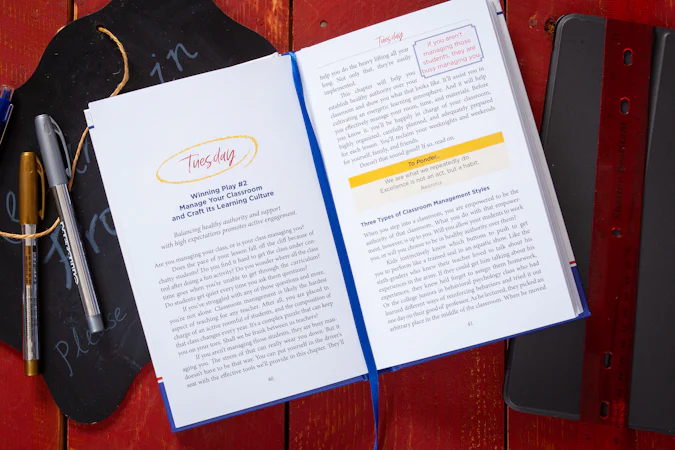 Tuesday
Winning Play #2
Manage Your Classroom
and Craft Its Learning Culture
Balancing healthy authority and support
with high expectations promotes active engagement.
Are you managing your class, or is your class managing you?
Does the pace of your lesson fall off the cliff because of
chatty students? Do you find it hard to get the class under con-
trol after doing a fun activity? Do you wonder where all the class
time goes when you're unable to get through the curriculum?
Do students get quiet every time you ask them questions?
If you've struggled with any of these questions and more,
you're not alone. Classroom management is likely the hardest
aspect of teaching for any teacher. After all, you are placed in
charge of an active roomful of students, and the composition of
that class changes every year. It's a complex puzzle that can keep
you on your toes. Shall we be frank between us teachers?
If you aren't managing those students, they are busy man-
aging you. The stress of that can really wear you down. But it
doesn't have to be that way. You can put yourself in the driver's
seat with the effective tools we'll provide in this chapter. They'll
40
Tuesday
help you do the heavy lifting all year
long. Not only that, they're easily
implemented.
This chapter will help you
establish healthy authority over your
classroom and show you what that looks like. It'll assist you in
cultivating an energetic learning atmosphere. And it will help
you effectively manage your room, time, and materials. Before
you know it, you'll be happily in charge of your classroom,
highly organized, carefully planned, and adequately prepared
for each lesson. You'll reclaim your weeknights and weekends
for yourself, family, and friends.
Doesn't that sound good? If so, read on.
If you aren't
managing those
students, they are
busy managing you.
To Ponder...
We are what we repeatedly do.
Excellence is not an act, but a habit.
Three Types of Classroom Management Styles
When you step into a classroom, you are empowered to be the
authority of that classroom. What you do with that empower-
ment, however, is up to you. Will you allow your students to work
you, or will you choose to be in healthy authority over them?
Kids instinctively know which buttons to push to get
you to perform like a trained seal in an aquatic show. Like the
sixth-graders who knew their teacher loved to talk about his
experiences in the army. If they could get him talking about his
experiences, they knew he'd forget to assign them homework.
Or the college juniors in behavioral psychology class who had
learned different ways of reinforcing behaviors and tried it out
one day on their good ol' professor. As he lectured, they picked an
arbitrary place in the middle of the classroom. When he moved
41
in
Please